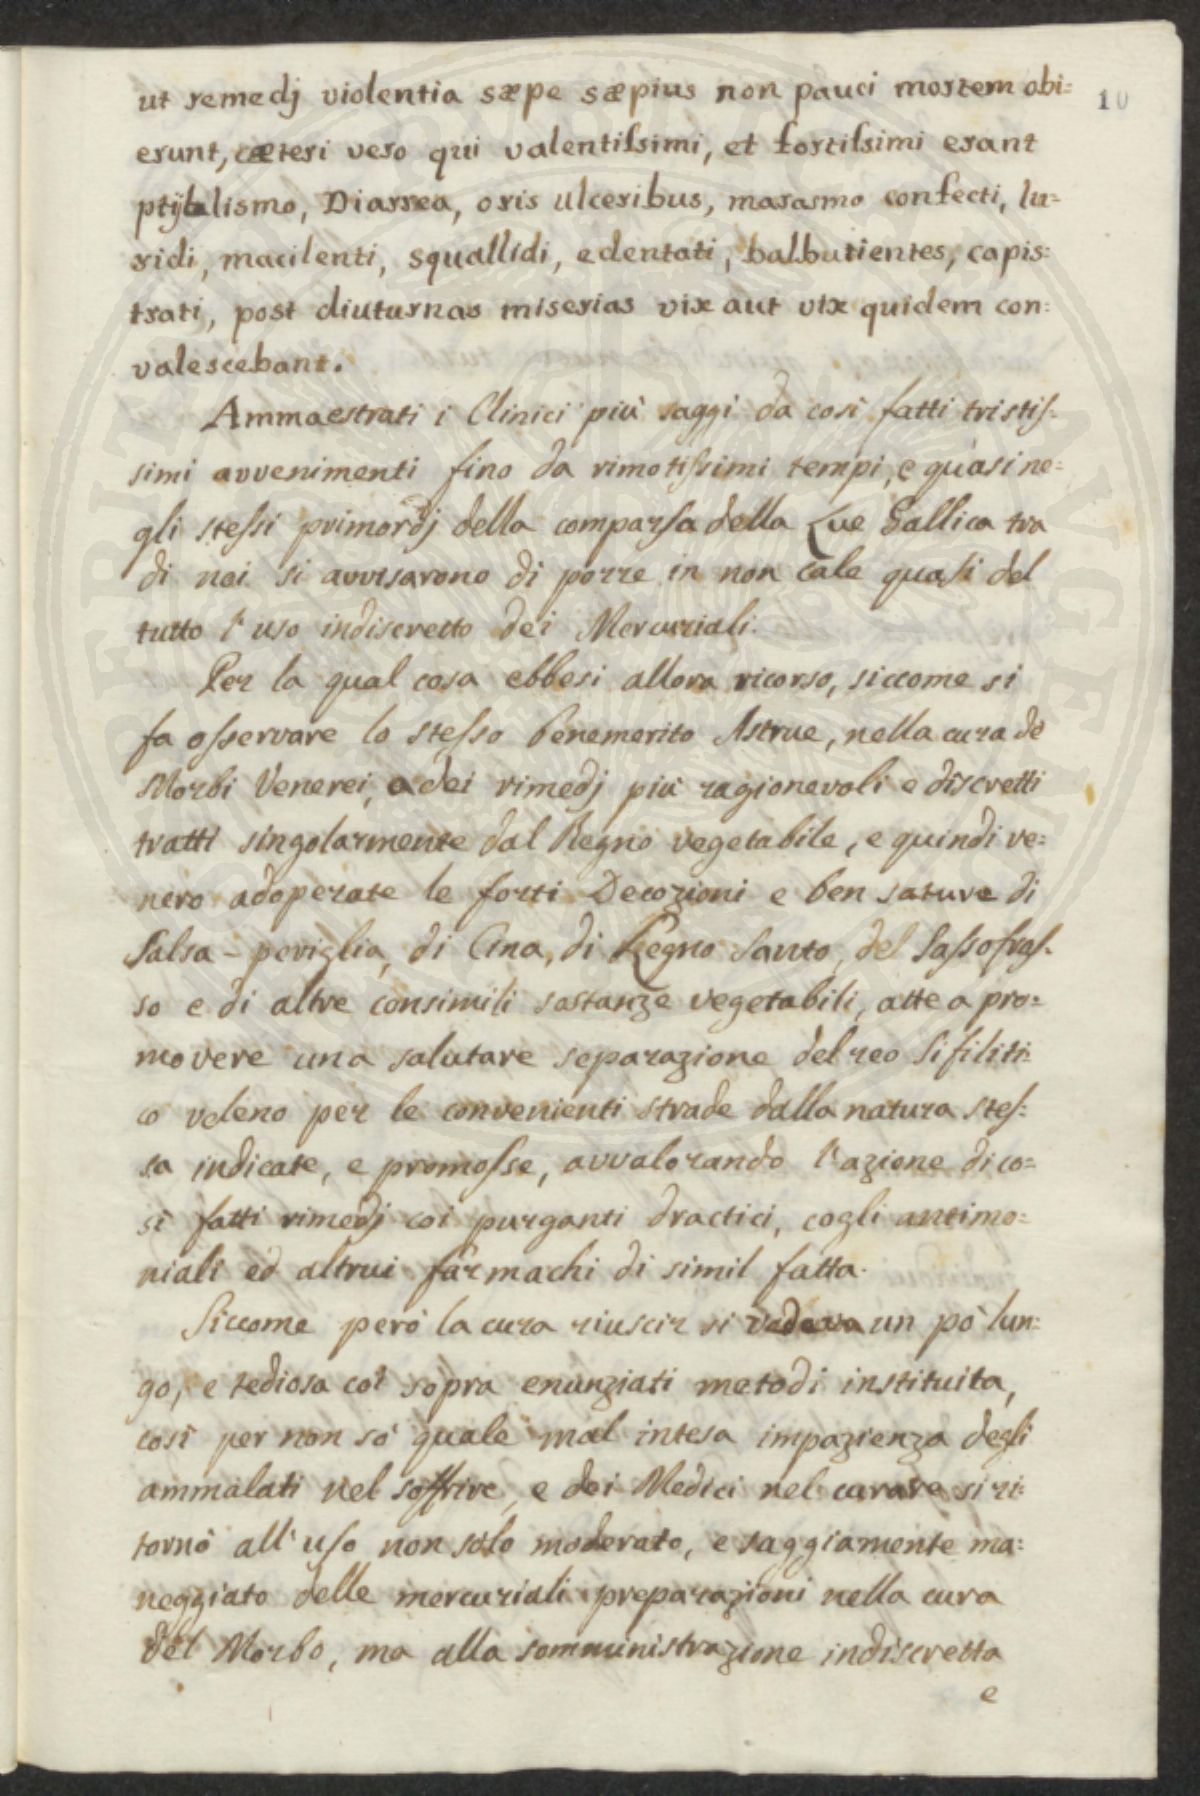 10
ut remedj violentia sæpe sæpius non pauci mortem obi=
erunt, cæteri vero qui valentissimi, et fortissimi erant
ptÿalismo, Diarrea, oris ulceribus, marasmo confecti, lu=
ridi, macilenti, squallidi, edentati, balbutientes, capis=
trati, post diuturnas miserias vix aut vix quidem con=
valescebant.
Ammaestrati i Clinici più saggi da così fatti tristis=
simi avvenimenti fino da rimotissimi tempi, e quasi ne=
gli stessi primordj della comparsa della Lue Gallica tra
di noi si avvisarono di porre in non cale quasi del
tutto l'uso indiscretto dei Mercuriali.
Per la qual cosa ebbesi allora ricorso, siccome si
fa osservare lo stesso benemerito Astruc, nella cura de'
Morbi Venerei, a dei rimedj più ragionevoli e discretti
tratti singolarmente dal Regno vegetabile, e quindi ve=
nero adoperate le forti Decozioni e ben sature di
Salsa-periglia, di Cina, di Legno Santo, del Sassofras=
so e di altre consimili sostanze vegetabili, atte a pro=
movere una salutare separazione del reo Sifiliti=
co veleno per le convenienti strade dalla natura stes=
sa indicate, e promosse, avvalorando l'azione di co=
sì fatti rimedj coi purganti dractici, cogli antimo=
niali ed altrui farmachi di simil fatta.
Siccome però la cura riuscir si vedeva un pò lun=
go, e tediosa coi sopra enunziati metodi instituita,
così per non sò quale mal intesa impazienza degli
ammalati nel soffrire, e dei Medici nel curare si ri=
tornò all'uso non solo moderato, e saggiamente ma=
neggiato delle mercuriali preparazioni nella cura
del Morbo, ma alla somministrazione indiscretta
e